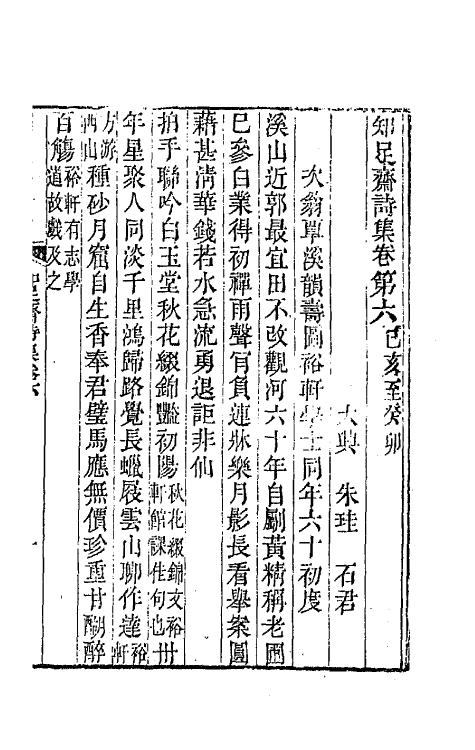 知足齋詩集卷第六 己亥至癸卯
大興 朱珪 石君
次翁覃溪韻壽圖裕軒學士同年六十初度
溪山近郭最宜田不改觀河六十年自劚黃精稱老圃
已參白業得初禪雨聲官負連牀樂月影長看舉案圓
藉甚清華錢若水急流勇退詎非仙
拍手聯吟白玉堂秋花綴錦豔初陽 秋花綴錦文裕軒館課佳句也 卅
年星聚人同淡千里鴻歸路覺長蠟屐雲山聊作達 裕軒
方游西山 種砂月窟自生香奉君璧馬應無價珍重甘醐醉
百觴 裕軒有志學道故戲及之
知足齋詩集卷六 一